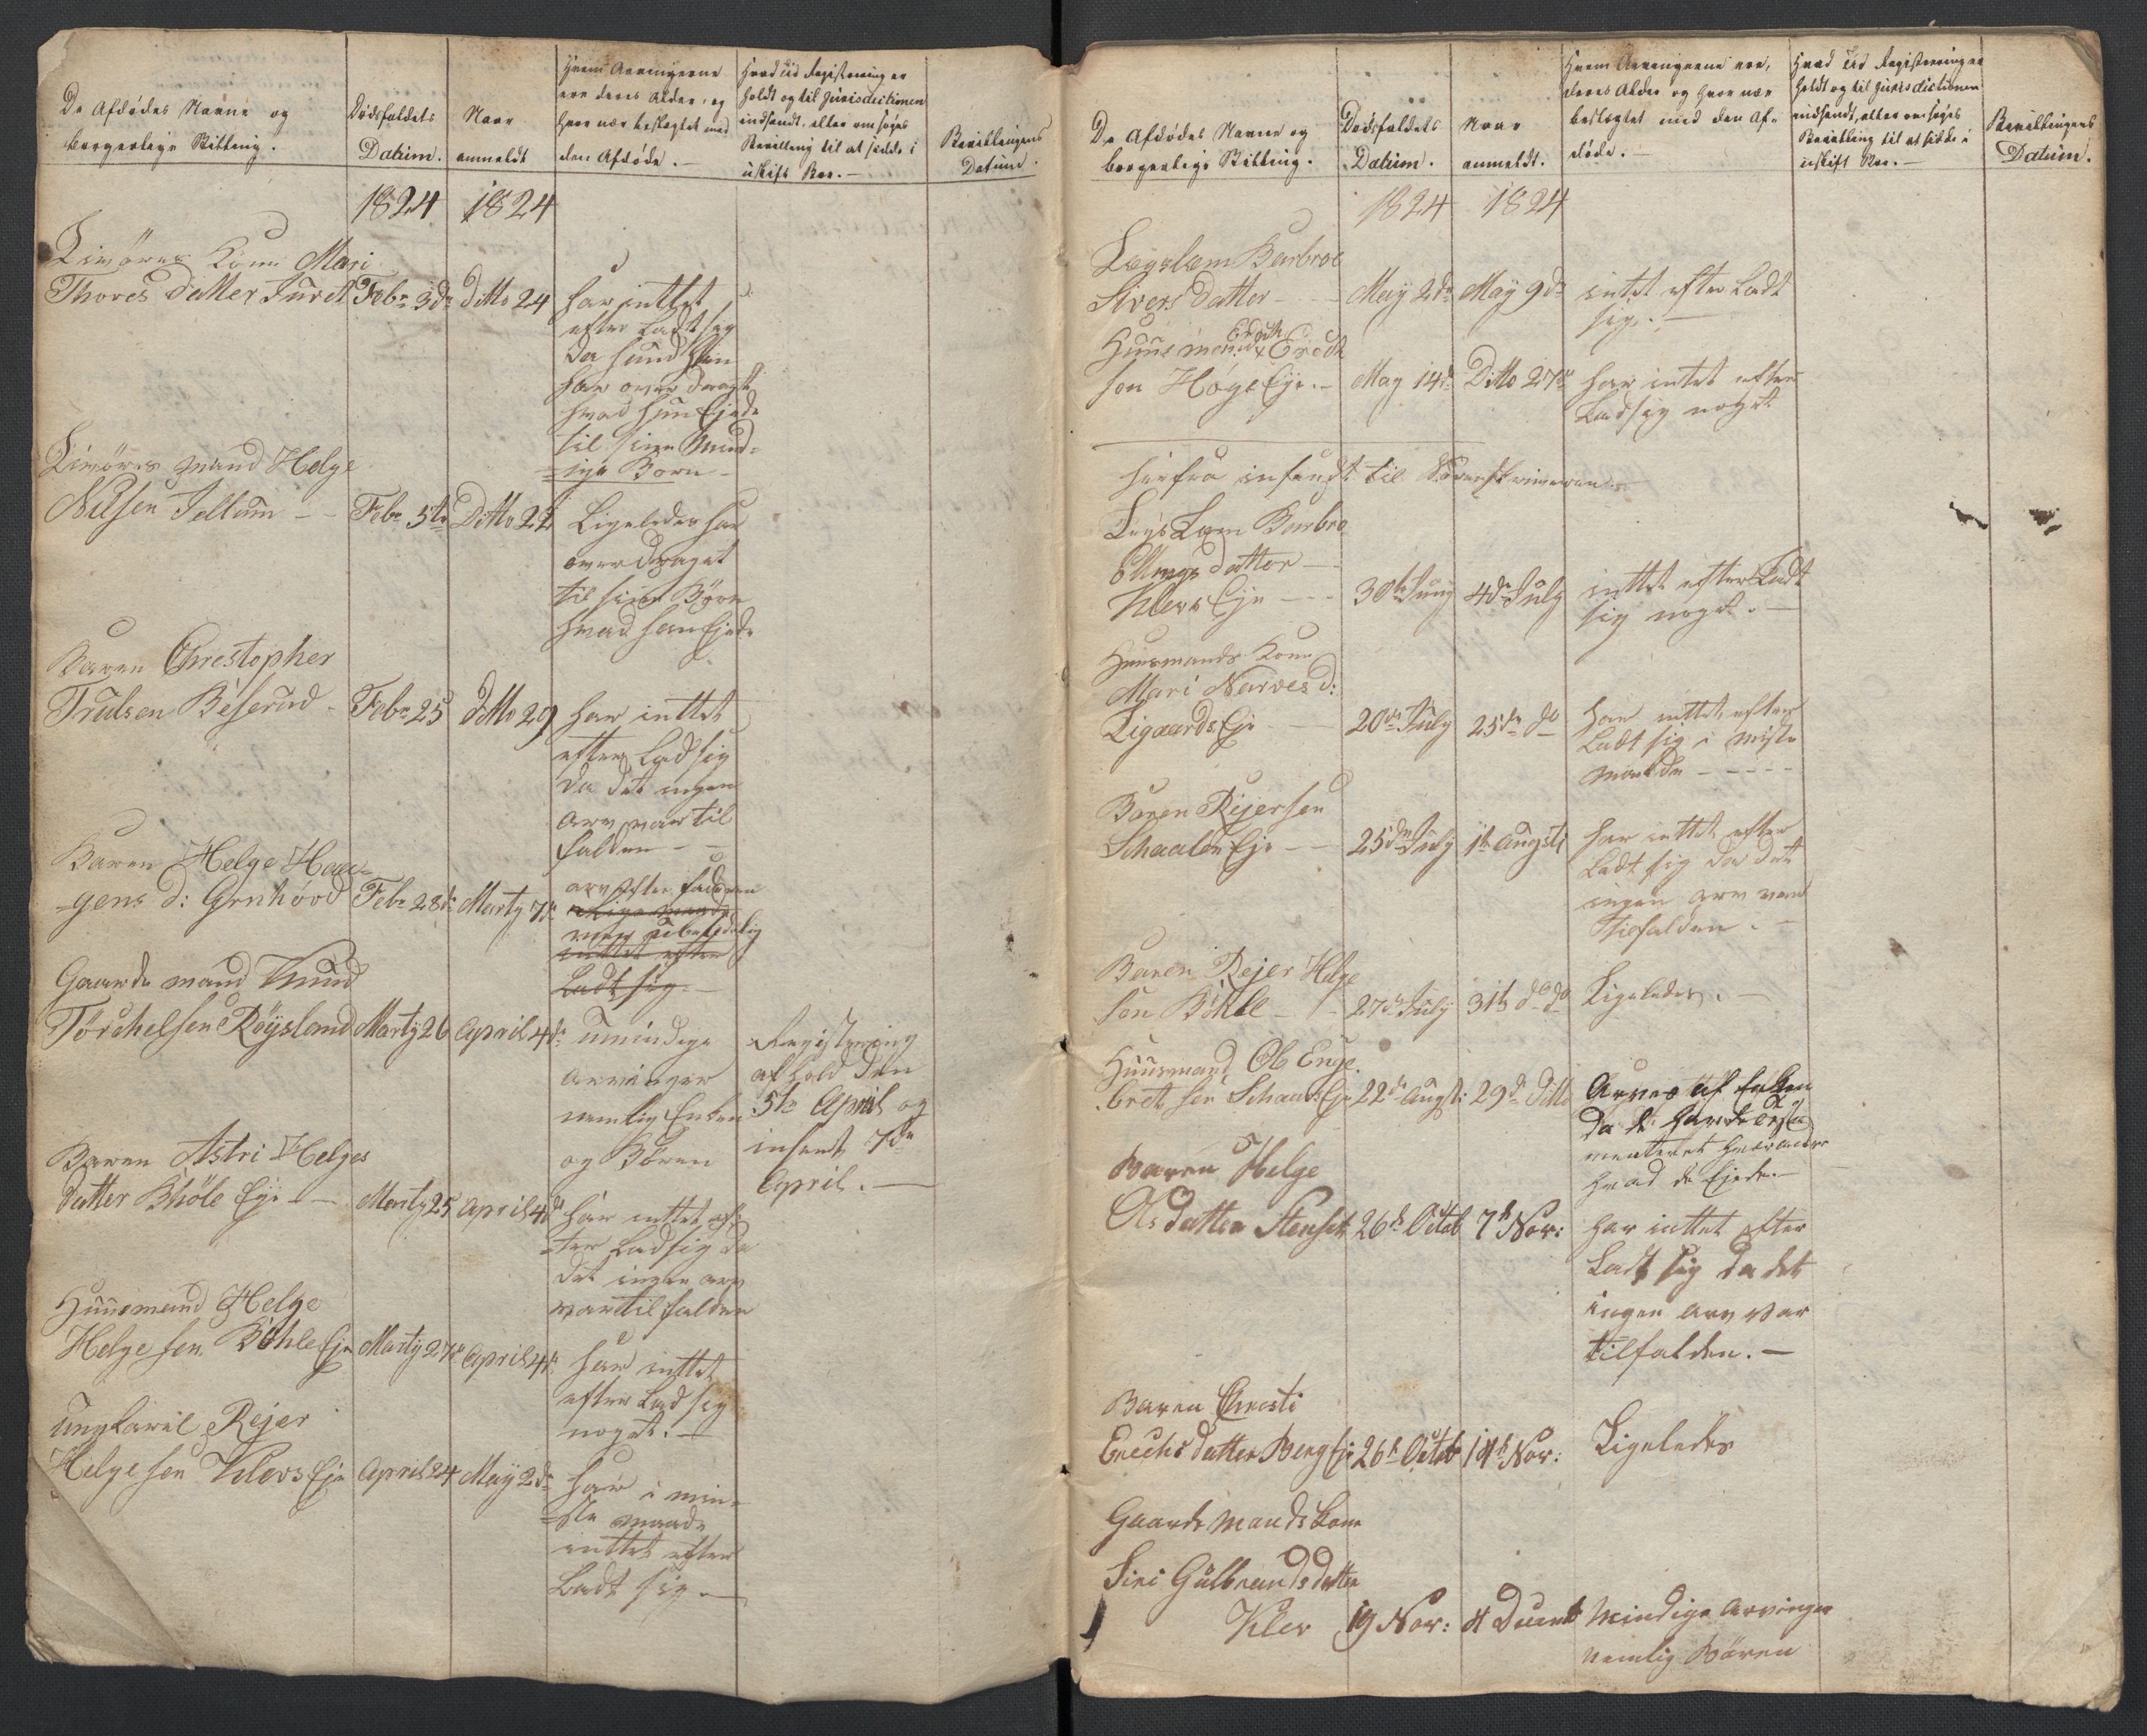 De Afdødes Navne og
borgerlige Stilling.
Dødsfaldets
Datum.
Naar
anmeldt
Hvem Arvingerne
ere deres Alder, og
hvor nær beslegtet med
den Afdøde.
Hvad tid Registrering er
holdt og til Jurisdictionen
indsendt, eller om søges
Bevilling til at sidde i
uskift Boe.
Bevillingens
Datum.
1824 1824
Kone Mari
Thores datter Juret Febr 3de ditto 24 har inttet
efter Ladt sig
da hund
har over dragt
hvad hun Ejede
til sine Mÿnd-
ige Born
mand Helge
Nilsen Jellum Febr 5te Ditto 22 Ligeledes har
over draget
til sine Børn
hvad han Ejede
Baren Chrestopher
Trulsen Beserud Febr 25 ditto 29 har inttet
efter Lad sig
da det ingen
arv var til
falden
Baren Helge Haa-
gens d: Grnhøvd Febr 28de Marty 7de arv efter faderen
men ubetydelig
inttet efter
Ladt sig
Gaarde mand Knud
Torchelsen Röysland Marty 26 April 4de umindige
arvinger
nemlig Enken
og Børen
Registrering
af hold den
5te April og
insent 7de
April.
Baren Astri Helges
datter Bhöle Eje Marty 25 April 4de har inttet ef-
ter Lad sig da
det ingen arv
var til falden
Huusmand Helge
Helgesen Böhle Eje Marty 27de April 4de har inttet
efter Lad sig
noget.
ungkaril Rejer
Helgesen Klevs Eje April 24 Maÿ 2de har i min-
ste maade
inttet efter
Ladt sig
De Afdødes Navne og
borgerlige Stilling.
Dødsfaldets
Datum.
Naar
anmeldt.
Hvem Arvingerne ere,
deres Alder og hvor nær
beslegtet med den Af-
døde.
Hvad tid Registrering er
holdt og til Jurisdictionen
indsendt, eller om søges
Bevilling til at sidde i
uskift Boe.
Bevillingens
Datum.
1824 1824
Lægslem Barbroe
Sivers datter Maÿ 2de Maÿ 9de intet efter Ladt
sig.
Huusmand Eredt
son Høge Eje Maÿ 14de Ditto 27de har intet efter
Lad sig noget
hierfra insendt til Sorenskriveren
Legs Lem Barbro
Ellings datter
Klevs Eje 30te Juny 4de July inttet efter Ladt
sig noget.
Huusmands Kone
Mari Narves d:
Ligaards Eje 20de July 25de do har inttet efter
Ladt sig i miste
maade
Baren Rejersen
Schaalen Eje 25de July 1te augsti har inttet efter
Ladt sig da det
ingen arv var
tilfalden.
Baren Rejer Helge
son Böhle 27de July 31te do do Ligeledes.
Huusmand Ole Enge
bret sen Schaals Eje 22de Augst: 29de Ditto Arves af Enken
da de havde testa
menteret hverandre
hvad de Ejede.
Baren Helge
Ols datter Stenset 26de Octob 7de Nov: har inttet efter
Ladt sig da det
ingen arv var
tilfalden.
Baren Chresti
Erechs datter Berg Eje 26de Octob 14de Nov: Ligeledes
Gaarde mands kone
Siri Gulbrands datter
Klev 19 Nov: 4 Dcemb Mindige Arvinger
nemlig Børen